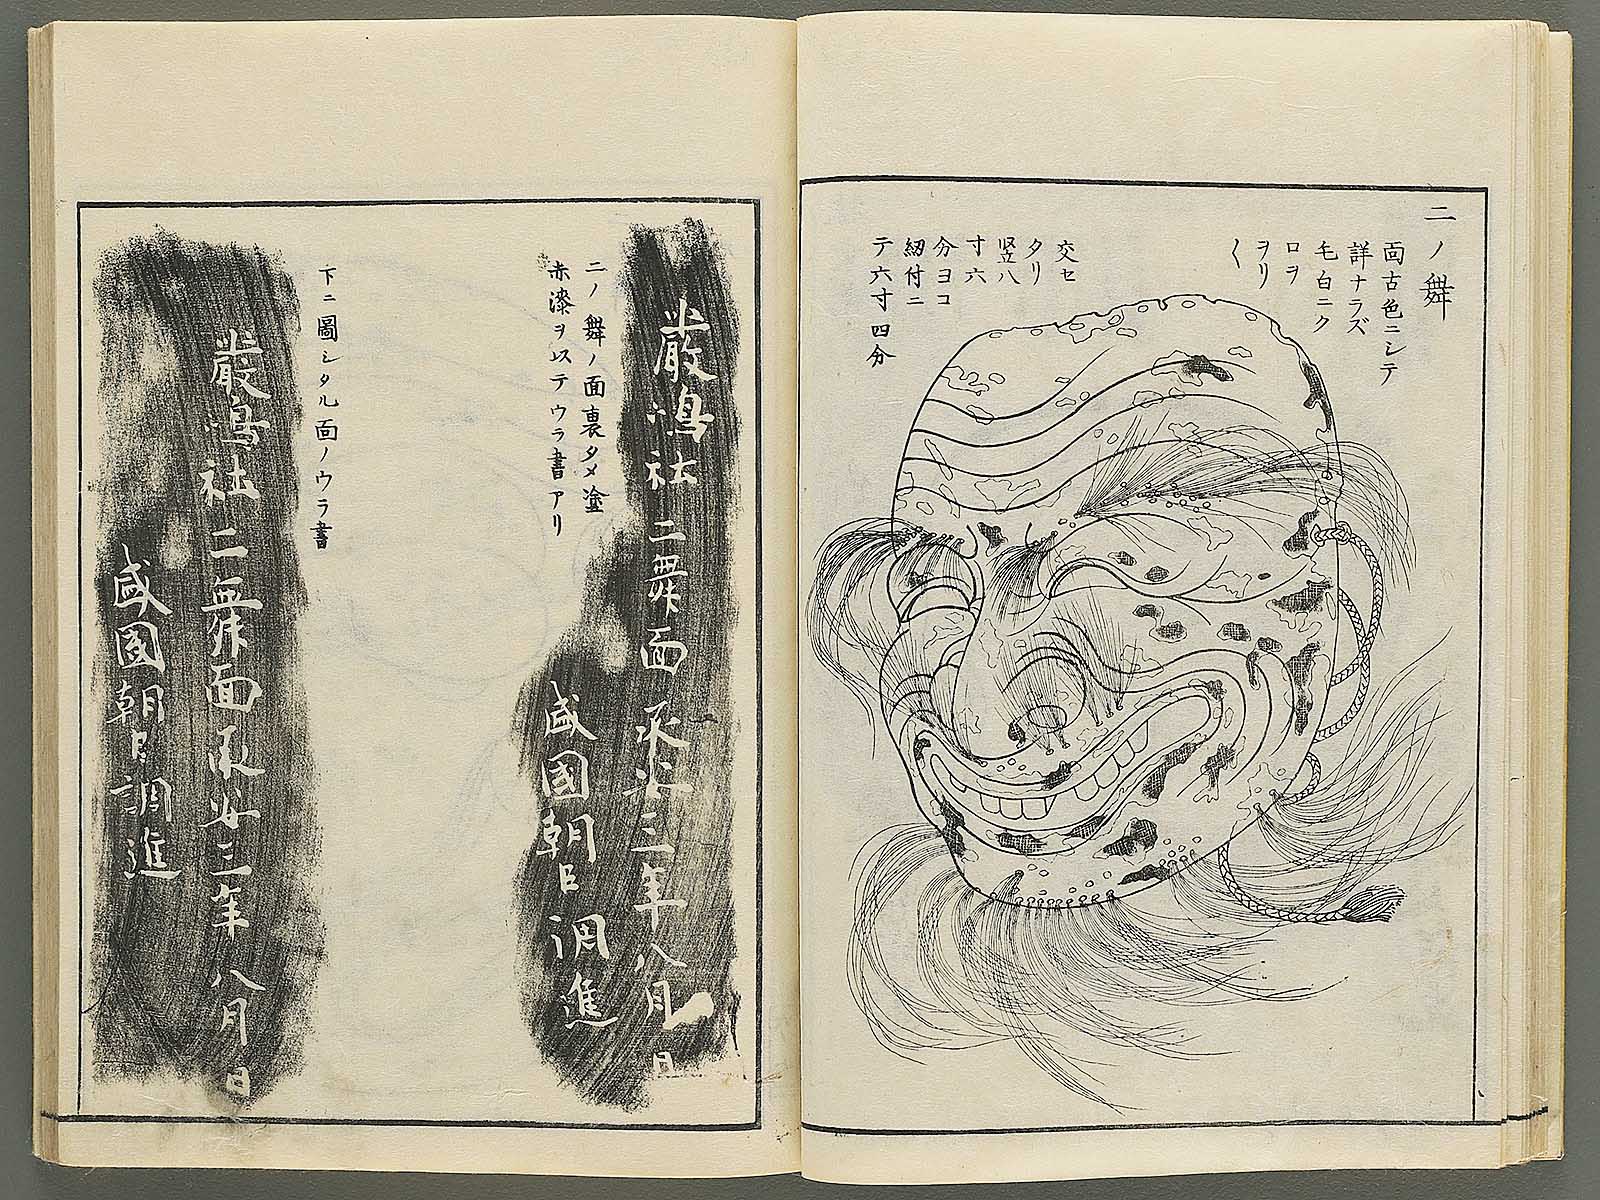 二ノ舞
面古色ニシテ
詳ナラズ
毛白ニク
ロヲ
ヲリ
〱
交セ
タリ
竪八
寸六
分ヨコ
紐付ニ
テ六寸四分
嚴嶋社二舞面承安三年八月日
盛國朝臣調進
二ノ舞ノ面裏タメ塗
赤漆ヲ以テウラ書アリ
下ニ圖シタル面ノウラ書
嚴嶋社二舞面承安三年八月日
盛國朝臣調進